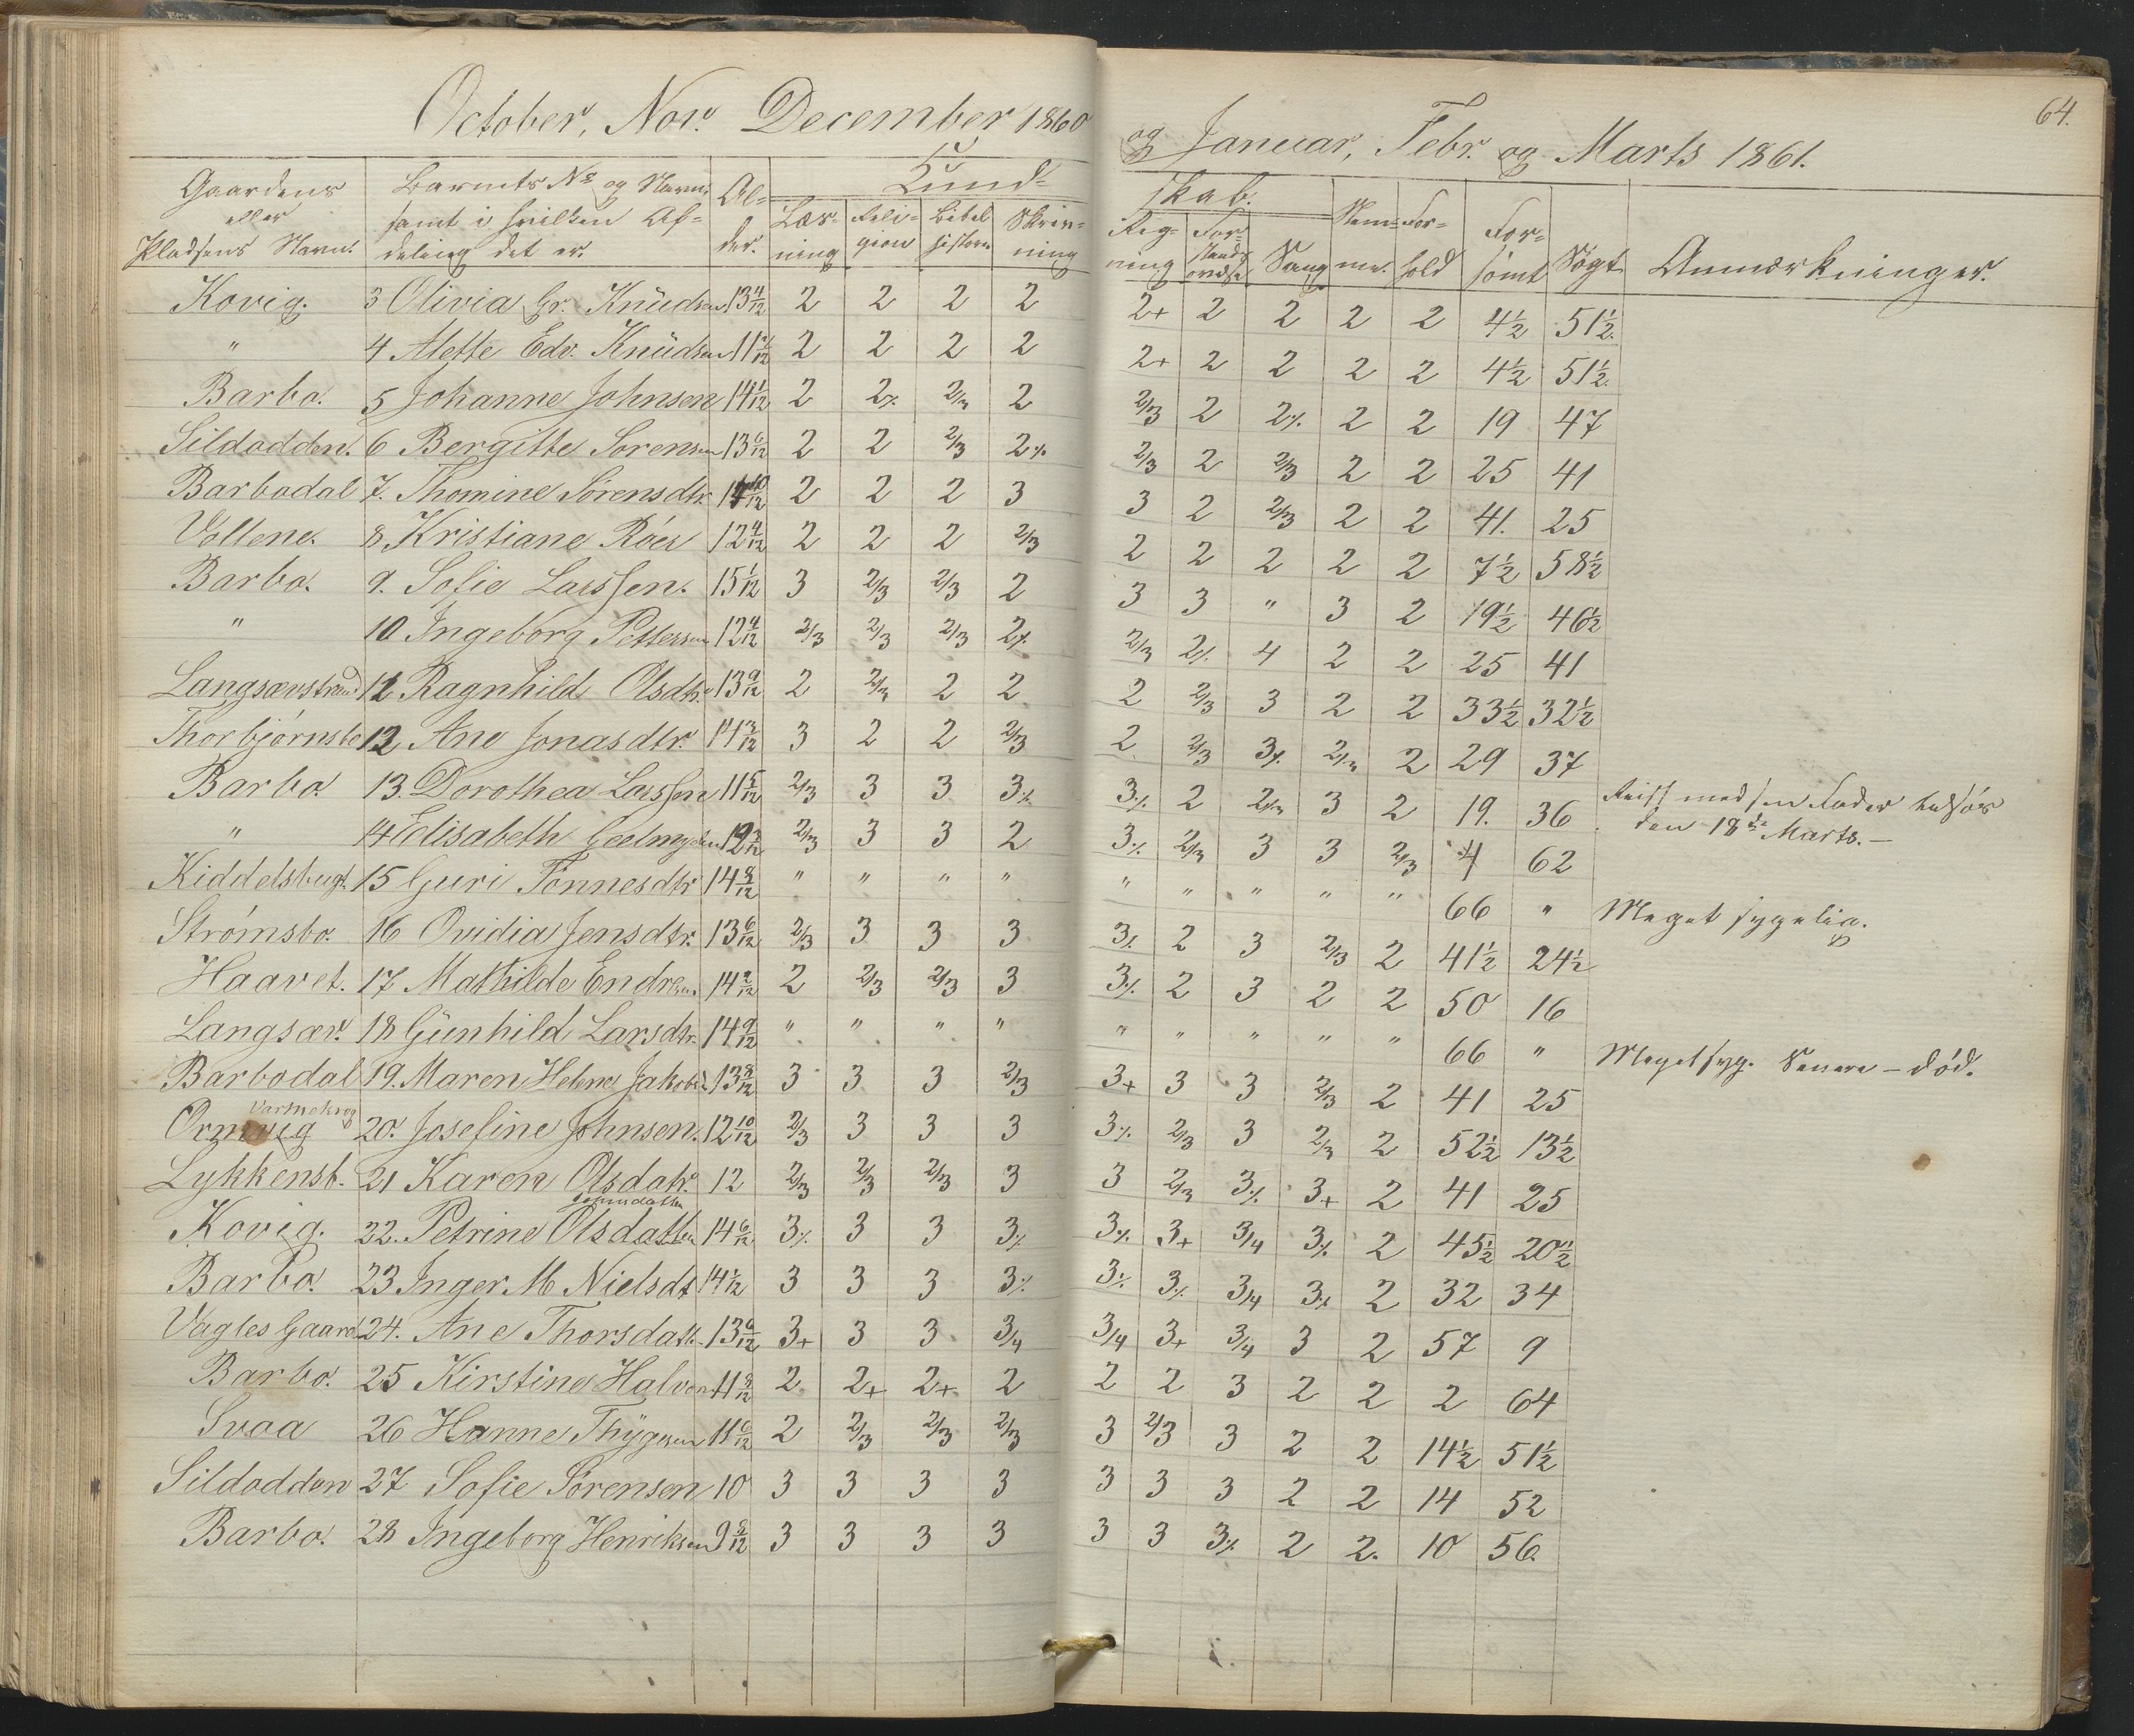 October, Nov. December 1860
og Januar, Febr. og Marts 1861.
64.
Gaardens eller Pladsens Navn. | Barnets No og Navn, samt i hvilken Afdeling det er. | Alder. | Kundskab. | Læsning | Religion | Bibelhistorie | Skrivning | Regning | Forstandsøvelse | Sang | Nemme. | Forhold | Forsømt | Søgt | Anmærkninger.
Kovig. 3 Olivia Gr. Knüdsen 13 4/12 2 2 2 2 2+ 2 2 2 2 4½ 51½.
" 4 Alette Edv. Knüdsen 11 2 2 2 2 2+ 2 2 2 2 4½ 51½.
Barbo. 5 Johanne Johnsen 14 1/12 2 2% 2/3 2 2/3 2 2% 2 2 19 47
Sildodden. 6 Bergitte Sorensen 13 6/12 2 2 2/3 2% 2/3 2 2/3 2 2 25 41
Barbodal 7. Thomine Sörensdtr. 14 10/12 2 2 2 3 3 2 2/3 2 2 41. 25
Vollene. 8 Kristiane Röer 12 4/12 2 2 2 2/3 2 2 2 2 2 7½ 58½
Barbo. 9. Sofie Larssen. 15 1/12 3 2/3 2/3 2 3 3 " 3 2 19½ 46½
" 10 Ingeborg Pettersen 12 4/12 2/3 2/3 2/3 2% 2/3 2% 4 2 2 25 41
Langsævstrand 11 Ragnhild Olsdtr. 13 9/12 2 2/3 2 2 2 2/3 3 2 2 33½ 32½
Thorbjørnsbo 12 Ane Jonasdtr. 14 3/12 3 2 2 2/3 2 2/3 3% 2/3 2 29 37
Barbo. 13. Dorothea Larssen 11 5/12 2/3 3 3 3% 3% 2 2/3 3 2 19. 36 Reist med sin Fader tilsøs
den 18de Marts. —
" 14 Elisabeth Geelmyden 12 3/12 2/3 3 3 2 3% 2/3 3 3 2/3 4 62
Kiddelsbugt. 15 Guri Tönnesdtr 14 8/12 " " " " " " " " " 66 " Meget sygelig.
Strömsbo. 16 Ovidia Jensdtr. 13 6/12 2/3 3 3 3 3% 2 3 2/3 2 41½ 24½
Haavet. 17 Mathilde Endresen. 14 2/12 2 2/3 2/3 3 3% 2 3 2 2 50 16
Langsæv. 18 Günhild Larsdtr. 14 9/12 " " " " " " " " " 66 " Meget syg. Senere — död.
Barbodal 19. Maren Helene Jakobs 13 8/12 3 3 3 2/3 3+ 3 3 2/3 2 41 25
Varmekrog
Ormvig 20. Josefine Johnsen. 12 10/12 2/3 3 3 3 3% 2/3 3 2/3 2 52½ 13½
Lykkensb. 21 Karen Olsdatr. 12 2/3 2/3 2/3 3 3 2/3 3% 3+ 2 41 25
Johnsdatter
Kovig. 22. Petrine Olsdatter 14 6/12 3% 3 3 3% 3% 3+ 3/4 3% 2 45½ 20½
Barbo. 23 Inger M Nielsdt 14 3 3 3 3% 3% 3% 3/4 3% 2 32 34
Vagles Gaard 24. Ane Thorsdatt. 13 9/12 3+ 3 3 3/4 3/4 3+ 3/4 3 2 57 9
Barbo. 25 Kirstine Halvors 11 8/12 2 2+ 2+ 2 2 2 3 2 2 2 64
Svaa 26 Hanne Thÿgesen 11 6/12 2 2/3 2/3 2/3 3 2/3 3 2 2 14½ 51½
Sildodden 27 Sofie Sörensen 10 3 3 3 3 3 3 3 2 2 14 52
Barbo. 28 Ingeborg Henriksen 9 8/12 3 3 3 3 3 3 3% 2 2. 10 56.